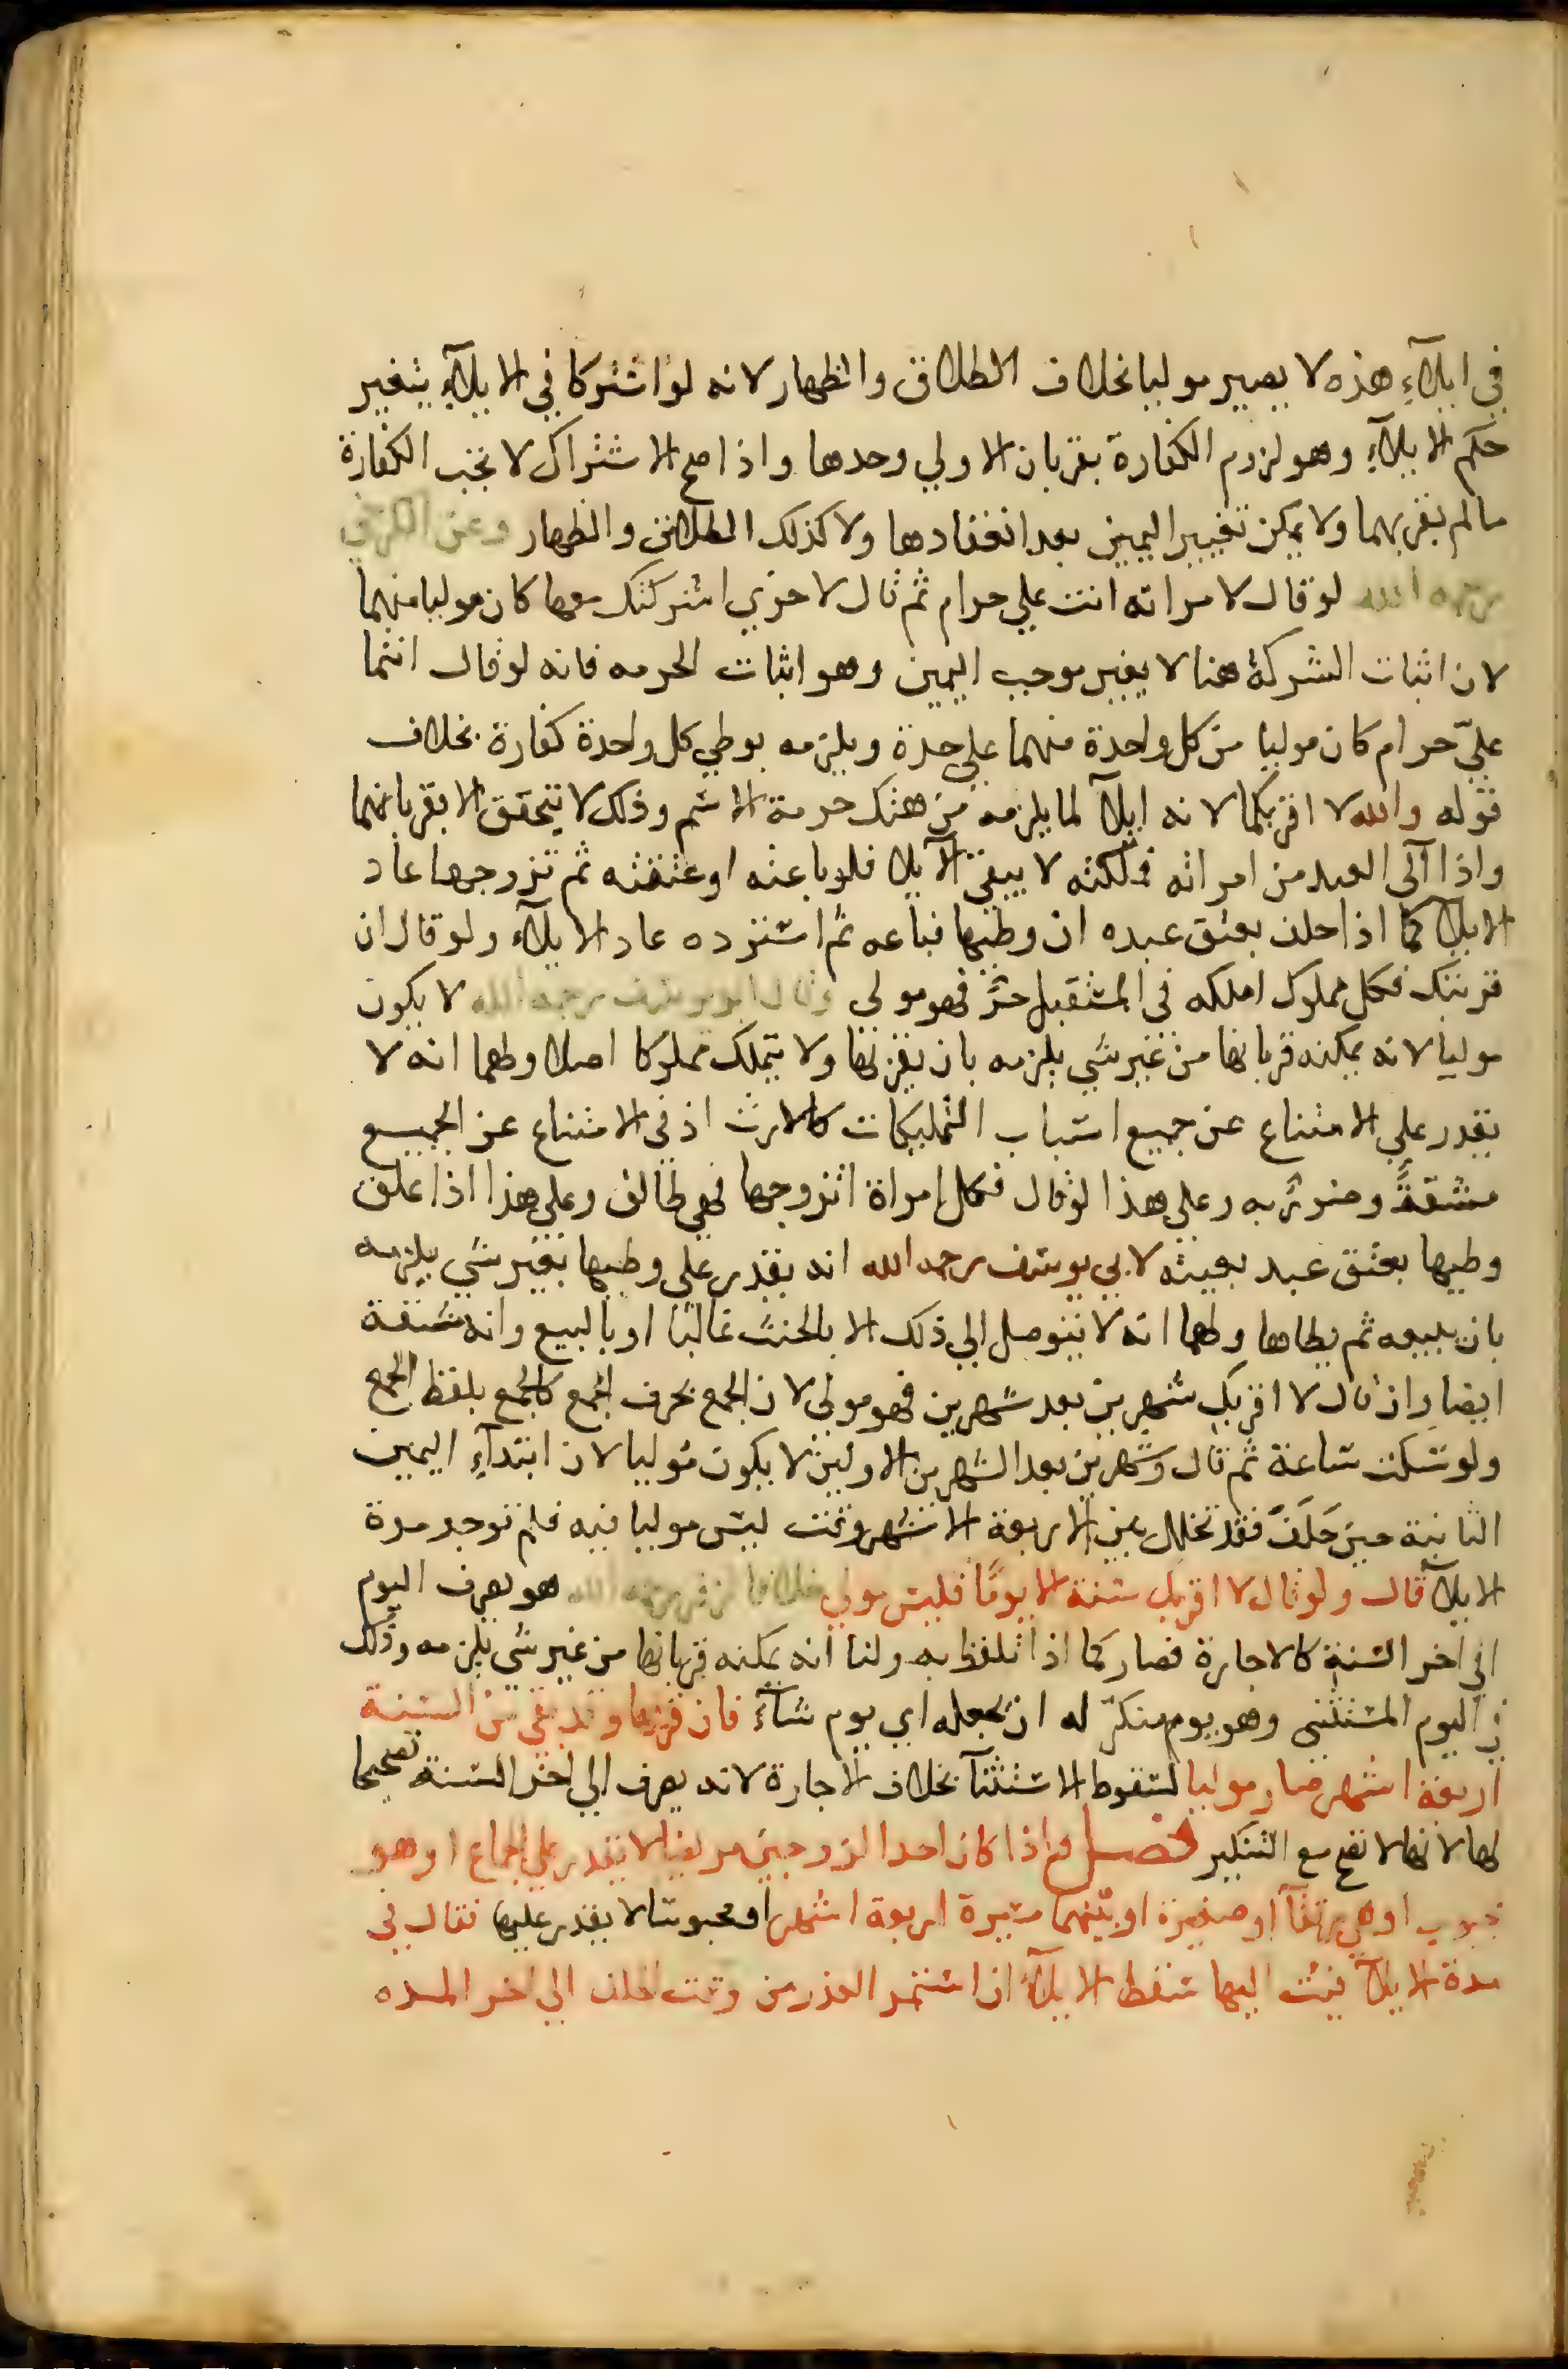 في ايلآءِ هذه لا يصير موليا بخلاف الطلاق والظهار لانه لو اشتركا في الايلآءِ يتغير
حكم الايلآءِ وهو لزوم الكفارة بقربان الاولي وحدها واذا صح الاشتراك لا تجب الكفارة
مالم يقربهما ولا يمكن تغيير اليمين بعد انعقادها ولا كذلك الطلاق والظهار وعن الكرخي
رحمه الله لو قال لامراته انت علي حرام ثم قال لاخري اشركتك معها كان موليا منهما
لان اثبات الشركة هنا لا يغير موجب اليمين وهو اثبات الحرمه فانه لو قال انتما
عليّ حرام كان موليا من كل واحدة منهما علي حدة ويلزمه بوطي كل واحدة كفارة بخلاف
قوله والله لا اقربكما لانه ايلآ لما يلزمه من هتك حرمة الاسم وذلك لا يتحقق الا بقربانهما
واذا آلى العبد من امراته فملكته لا يبقي الايلا فلو باعته او عتقته ثم تزوجها عاد
الايلا كما اذا حلف بعتق عبده ان وطيها فباعه ثم استرده عاد الايلآء ولو قال ان
قربتك فكل مملوك املكه في المستقبل حرٌّ فهو مولى وقال ابو يوسف رحمه الله لا يكون
موليا لانه يمكنه قربانها من غير شي يلزمه بان يقربها ولا يتملك مملوكا اصلا ولهما انه لا
يقدر علي الامتناع عن جميع اسباب التمليكات كالارث اذ في الامتناع عن الجميع
مشقةً وضررٌ به وعلي هذا لو قال فكل امراة اتزوجها فهي طالق وعلي هذا اذا علق
وطيها بعتق عبد بعينه لابي يوسف رحمه الله انه يقدر علي وطيها بغير شي يلزمه
بان يبيعه ثم يطاها ولهما انه لا يتوصل الي ذلك الا بالحنث غالبًا او بالبيع وانه مشقة
ايضا وان قال لا اقربكِ شهرين بعد شهرين فهو مولى لان الجمع بحرف الجمع كالجمع بلفظ الجمع
ولو سكت ساعة ثم قال وشهرين بعد الشهرين الاولين لا يكون موليا لان ابتدآءِ اليمين
الثانية حين حَلَفَ فقد تخلل بين الاربعة الاشهر وقت ليس موليا فيه فلم توجد مدة
الايلآ قال ولو قال لا اقربك سنة الا يومًا فليس مولي خلافا لزفر رحمه الله هو يصرف اليوم
الي اخر السنة كالاجارة فصار كما اذا تلفظ به ولنا انه يمكنه قربانها من غير شي يلزمه وذلك
في اليوم المستثني وهو يوم منكرٌ له ان يجعله اي يوم شآءَ فان قربها وقد بقي من السنة
اربعة اشهر صار موليا لسقوط الاستثنآ بخلاف الاجارة لانه يصرف الي اخر السنة تصحيحا
لها لانها لا تصح مع التنكير فصل واذا كان احد الزوجين مريضا لا يقدر علي الجماع او هو
مجبوب او هي رتقآ او صغيرة او بينهما مسيرة اربعة اشهر او محبوسا لا يقدر عليها فقال في
مدة الايلآ فيت اليها سقط الايلآ ان استمر العذر من وقت الحلف الي اخر المده